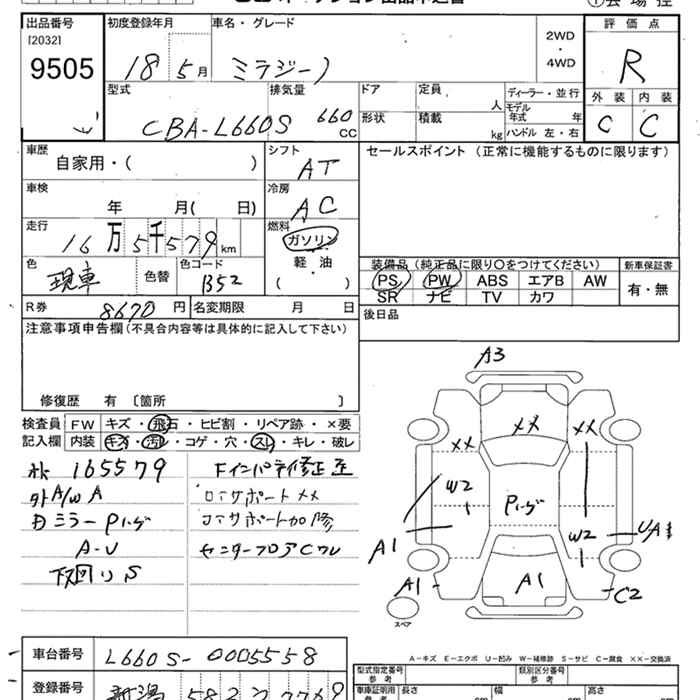 出品番号 初度登録年月 車名・グレード 評価点
[2032]
9505 18 5月 ミラジーノ 2WD・4WD R
型式 排気量 ドア 定員 人 ディーラー・並行 外装 内装
CBA-L660S 660 CC 形状 積載 kg モデル年式 年 C C
ハンドル 左・右
車歴 自家用・( ) シフト AT セールスポイント (正常に機能するものに限ります)
車検 年 月( 日) 冷房 AC
走行 16万5千579km 燃料 ガソリン
軽・油
( )
色 現車 色替 色コード B52
装備品 (純正品に限り○をつけてください) 新車保証書
PS PW ABS エアB AW 有・無
SR ナビ TV カワ
R券 8670円 名変期限 月 日 後日品
注意事項申告欄(不具合内容等は具体的に記入して下さい)
修復歴 有〔箇所 〕
検査員 FW キズ・飛石・ヒビ割・リペア跡・×要
記入欄 内装 キズ・汚レ・コゲ・穴・スレ・キレ・破レ
165579
外A/W A
ミラー
A-U
下回りS
コアサポート××
コアサポート
センターフロアC
A3
××
××
××
W2
W2
A1
A1
A1
UA1
C2
スペア
A-キズ E-エクボ U-凹み W-補修跡 S-サビ C-腐食 ××-交換済
車台番号 L660S-0005558
登録番号 新潟
型式指定番号 参考 類別区分番号 参考
車庫証明用 参考 長さ cm 幅 cm 高さ cm